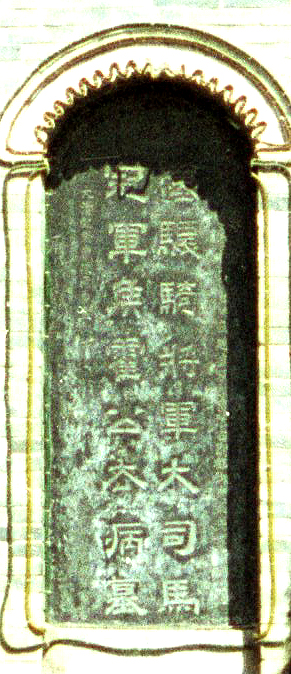 驃騎將軍大司馬
冠軍侯霍公去病墓